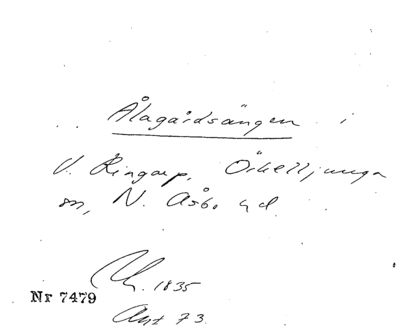 Ålagårdsängen i
V. Ringarp, Örkelljunga
sn, N. Åsbo hd.
1835
Nr 7479
73.